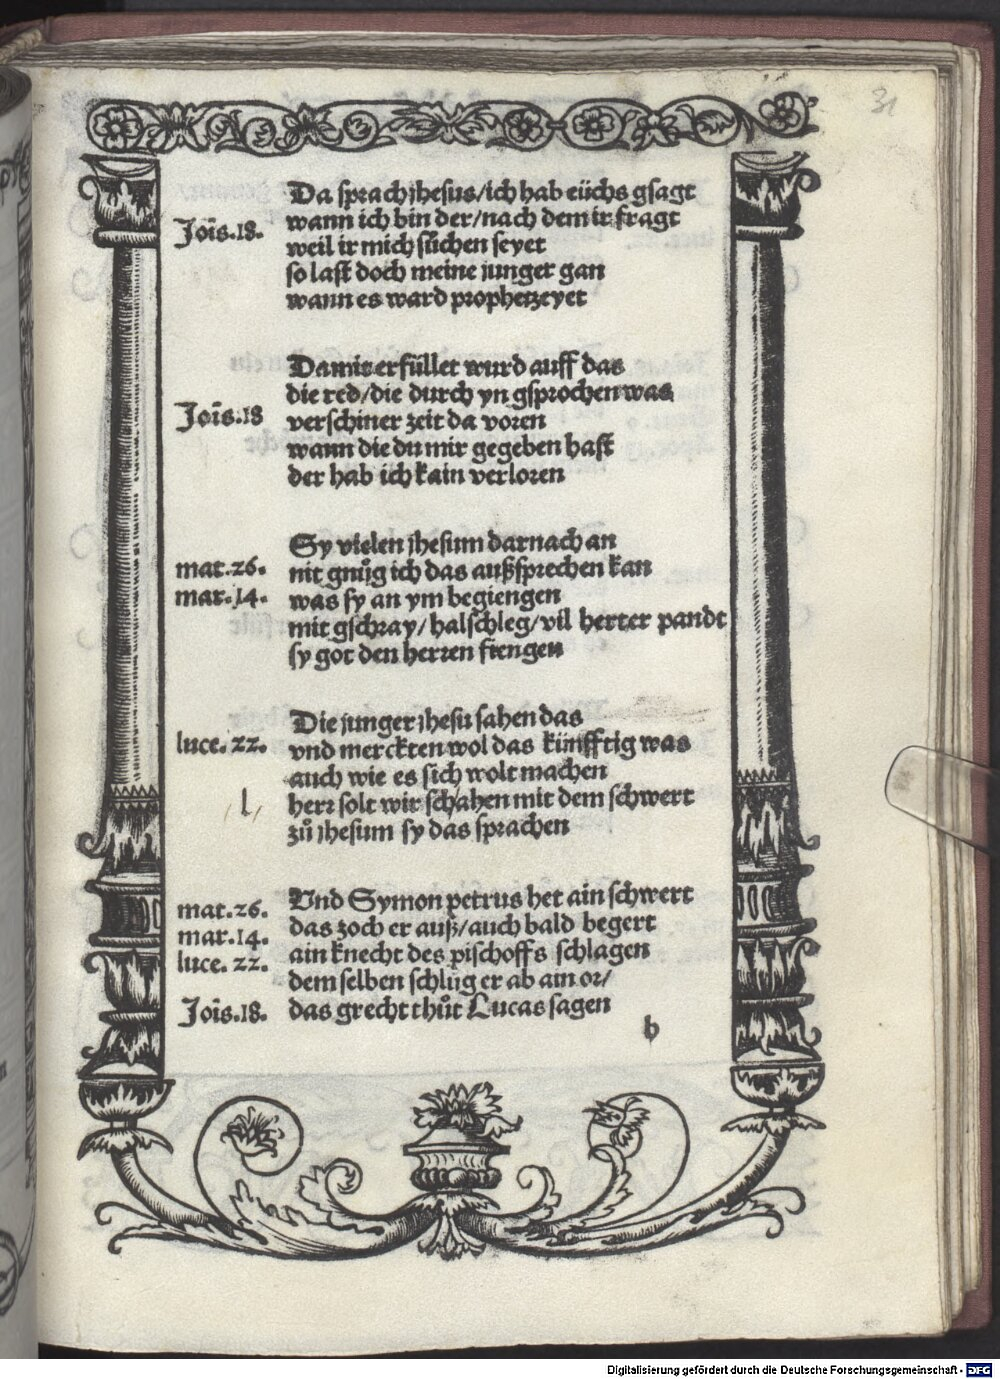 31
Da sprach jhesus/ich hab eüchs gsagt
wann ich bin der/nach dem ir fragt
Joīs.18.
weil ir mich sůchen seyet
so last doch meine junger gan
wann es ward prophetzeyet
Damit erfüllet wurd auff das
die red/die durch yn gsprochen was
Joīs.18
verschiner zeit da voren
wann die du mir gegeben hast
der hab ich kain verloren
Sy vielen jhesum darnach an
mat.26.
nit gnůg ich das außsprechen kan
mar.14.
was sy an ym begiengen
mit gschray/halschleg/vil herter pandt
sy got den herren fiengen
Die junger jhesu sahen das
luce.22.
vnd merckten wol das künfftig was
auch wie es sich wolt machen
l
herr solt wir schahen mit dem schwert
zů jhesum sy das sprachen
Vnd Symon petrus het ain schwert
mat.26.
das zoch er auß/auch bald begert
mar.14.
ain knecht des pischoffs schlagen
luce.22.
dem selben schlůg er ab ain or/
Joīs.18.
das grecht thůt Lucas sagen
b
Digitalisierung gefördert durch die Deutsche Forschungsgemeinschaft - DFG